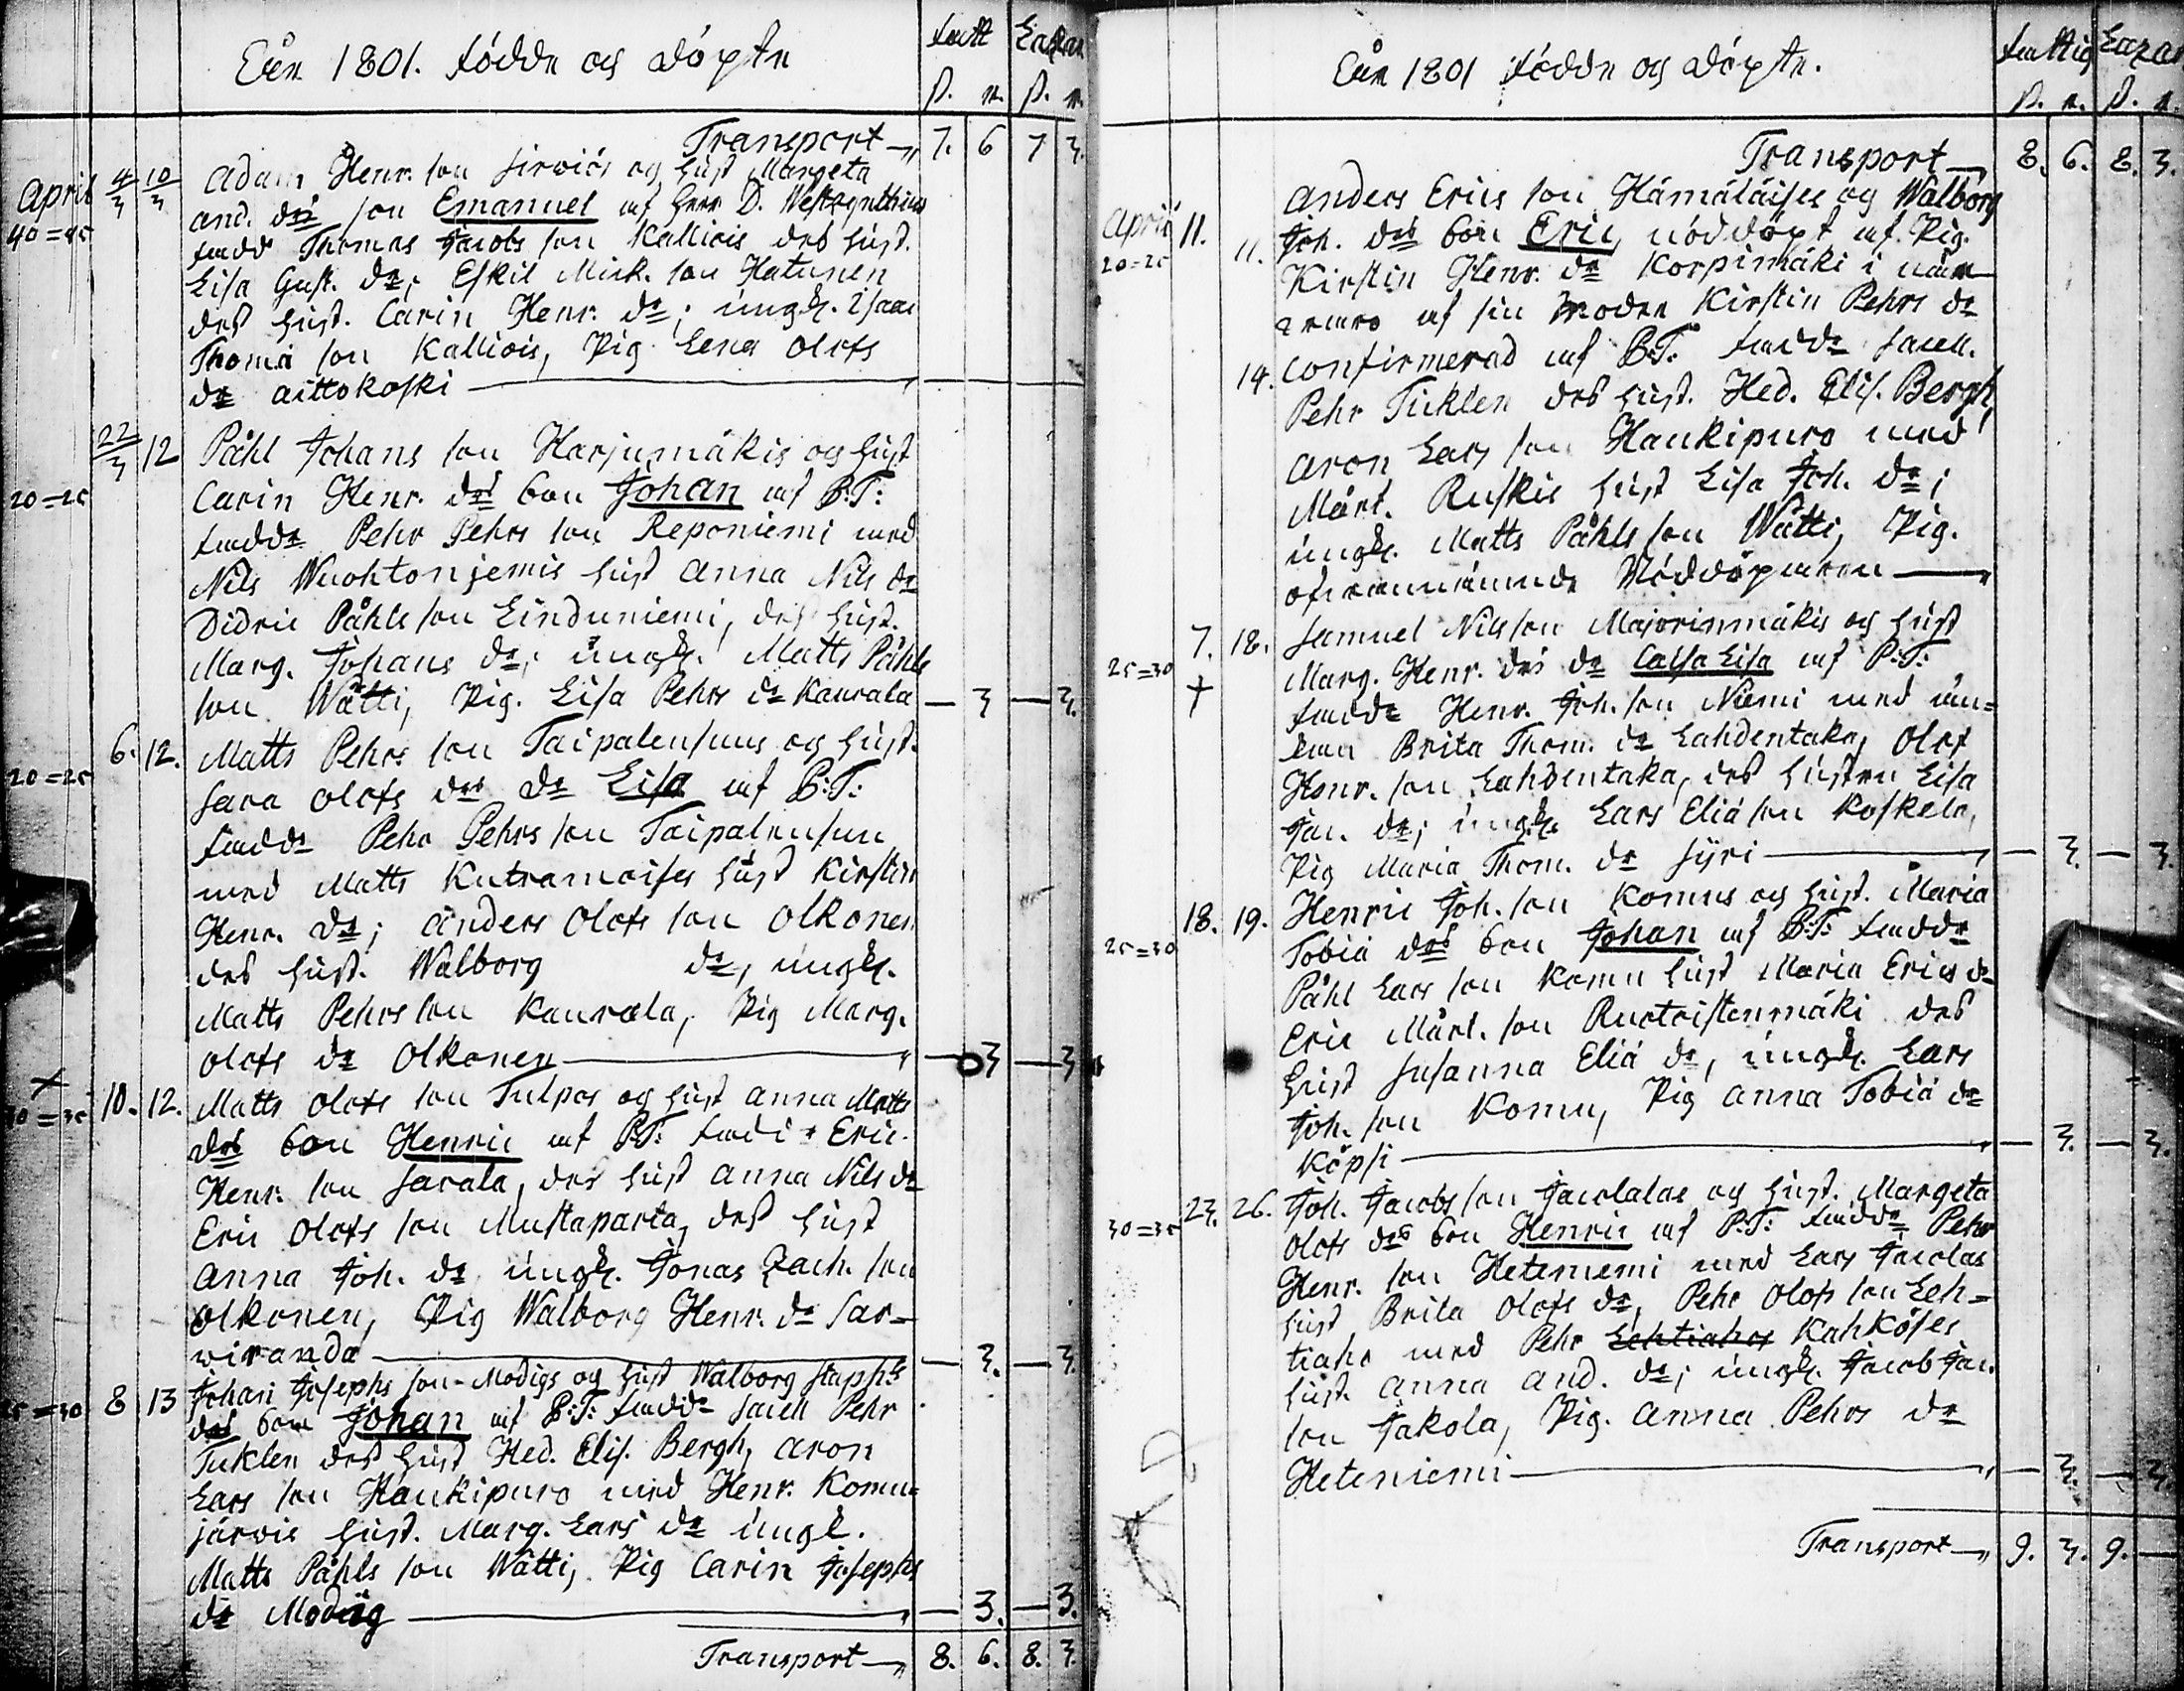 Åhr 1801. födde og döpte
fatt Lazar
ß. r. ß. r.
Transport 7. 6 7 3.
April 4/3 10/3 Adam Henr. son Sirviös og hust Margeta
40=45 And. drs son Emanuel af Herr D. Westzynthius
fadd Thomas Jacobs son Kalliois des hust.
Lisa Gust. dr, Eskil Mick. son Hatunen
des hust. Carin Henr. dr; ungk. Isaac
Thomæ son Kalliois, Pig Lena Olofs
dr Aittokoski
22/3 12 Påhl Johans son Harjumäkis og hust
20=25 Carin Henr. drs son Johan af P:T:
fadde Pehr Pehrs son Reponiemi med
Nils Wuohtonjemis hust Anna Nils dr
Didric Påhls son Linduniemi, des hust.
Marg. Johans dr, ungk. Matts Påhls
son Wätti, Pig. Lisa Pehrs dr Kaurala — 3 — 3.
6. 12. Matts Pehrs son Taipalensuus og hust.
20=25 Sara Olofs drs dr Lisa af P:T:
fadde Pehr Pehrs son Taipalensuu
med Matts Kutramoises hust Kirstin
Henr. dr; Anders Olofs son Olkonen
des hust. Walborg dr, ungk.
Matts Pehrs son Kaurala, Pig Marg.
Olofs dr Olkonen — 3 — 3
+ 10. 12. Matts Olofs son Tulpos og hust Anna Matts
30=35 drs son Henric af P:T: fadde Eric
Henr. son Sarala, des hust Anna Nils dr
Eric Olofs son Mustaparta, des hust
Anna Joh. dr, ungk. Jonas Zach. son
Olkonen, Pig Walborg Henr. dr Sar-
wiranda — 3. — 3.
25=30 8 13 Johan Josephs son Modigs og hust Walborg Staphs
drs son Johan af P:T: fadde Pehr
Tuklen des hust Hed. Elis. Bergh, Aron
Lars son Haukipuro med Henr. Komu-
järvis hust. Marg. Lars dr ungk.
Matts Påhls son Wätti, Pig Carin Josephs
dr Modig — 3. — 3.
Transport 8. 6. 8. 3.
Åhr 1801 födde og döpte.
fattig Lazar
ß. r. ß. r.
Transport 8. 6. 8. 3.
April 11. 11. Anders Erics son Hämäläises og Walborg
20=25 Joh. drs son Eric, nöddöpt af Pig.
Kirstin Henr. dr Korpimäki i när-
varo af sin Moder Kirstin Pehrs dr
14. confirmerad af P:T: fadde
Pehr Tuklen des hust. Hed. Elis. Bergh,
Aron Lars son Haukipuro med
Mårt. Ruskis hust Lisa Joh. dr;
ungk. Matts Påhls son Wätti, Pig.
ofvannämnde Nöddöparen
7. 18. Samuel Nils son Majorinmäkis og hust
25=30 + Marg. Henr. drs dr Caisa Lisa af P:T:
fadde Henr. Joh. son Niemi med än-
kan Brita Thom. dr Lahdentaka, Olof
Henr. son Lahdentaka, des hustru Lisa
Jac. dr; ungk. Lars Eliæ son Koskela,
Pig Maria Thom. dr Syri — 3. — 3.
18. 19. Henric Joh. son Komus og hust. Maria
25=30 Tobiæ drs son Johan af P:T: fadde
Påhl Lars son Komu hust Maria Erics dr
Eric Mårt. son Ruotoistenmäki des
hust Susanna Eliæ dr, ungk. Lars
Joh. son Komu, Pig Anna Tobiæ dr
Köpsi — 3. — 3.
23. 26. Joh. Jacobs son Jacolalas og hust. Margeta
30=35 Olofs drs son Henric af P:T: fadde Pehr
Henr. son Heteniemi med Lars Jacolas
hust Brita Olofs dr, Pehr Olofs son Leh-
tiaho med Pehr Lehtiahos Kahköses
hust. Anna And. dr; ungk. Jacob Jac.
son Jakola, Pig. Anna Pehrs dr
Heteniemi — 3. — 3.
Transport 9. 3. 9. —